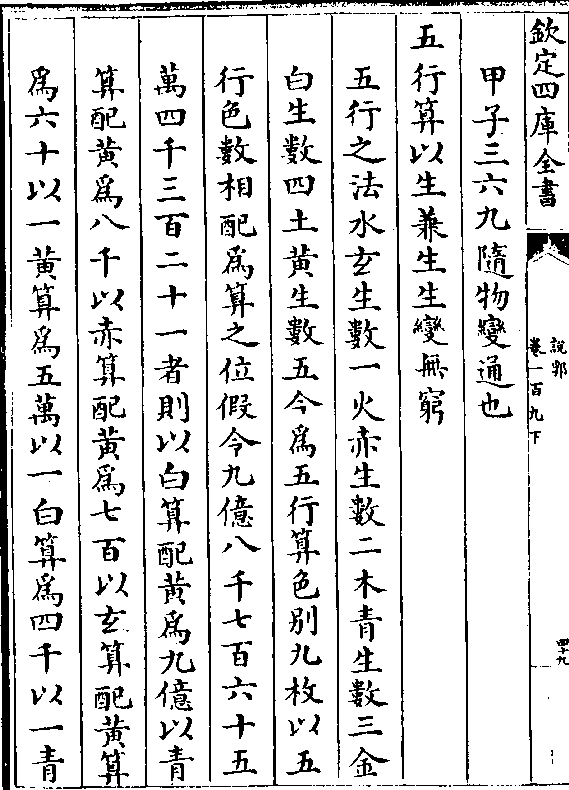 欽定四庫全書
說郛
卷一百九下
四十九
甲子三六九隨物變通也
五行算以生兼生生變無窮
五行之法水玄生數一火赤生數二木青生數三金
白生數四土黃生數五今為五行算色别九枚以五
行色數相配為算之位假令九億八千七百六十五
萬四千三百二十一者則以白算配黃為九億以青
算配黃為八千以赤算配黃為七百以玄算配黃算
為六十以一黃算為五萬以一白算為四千以一青